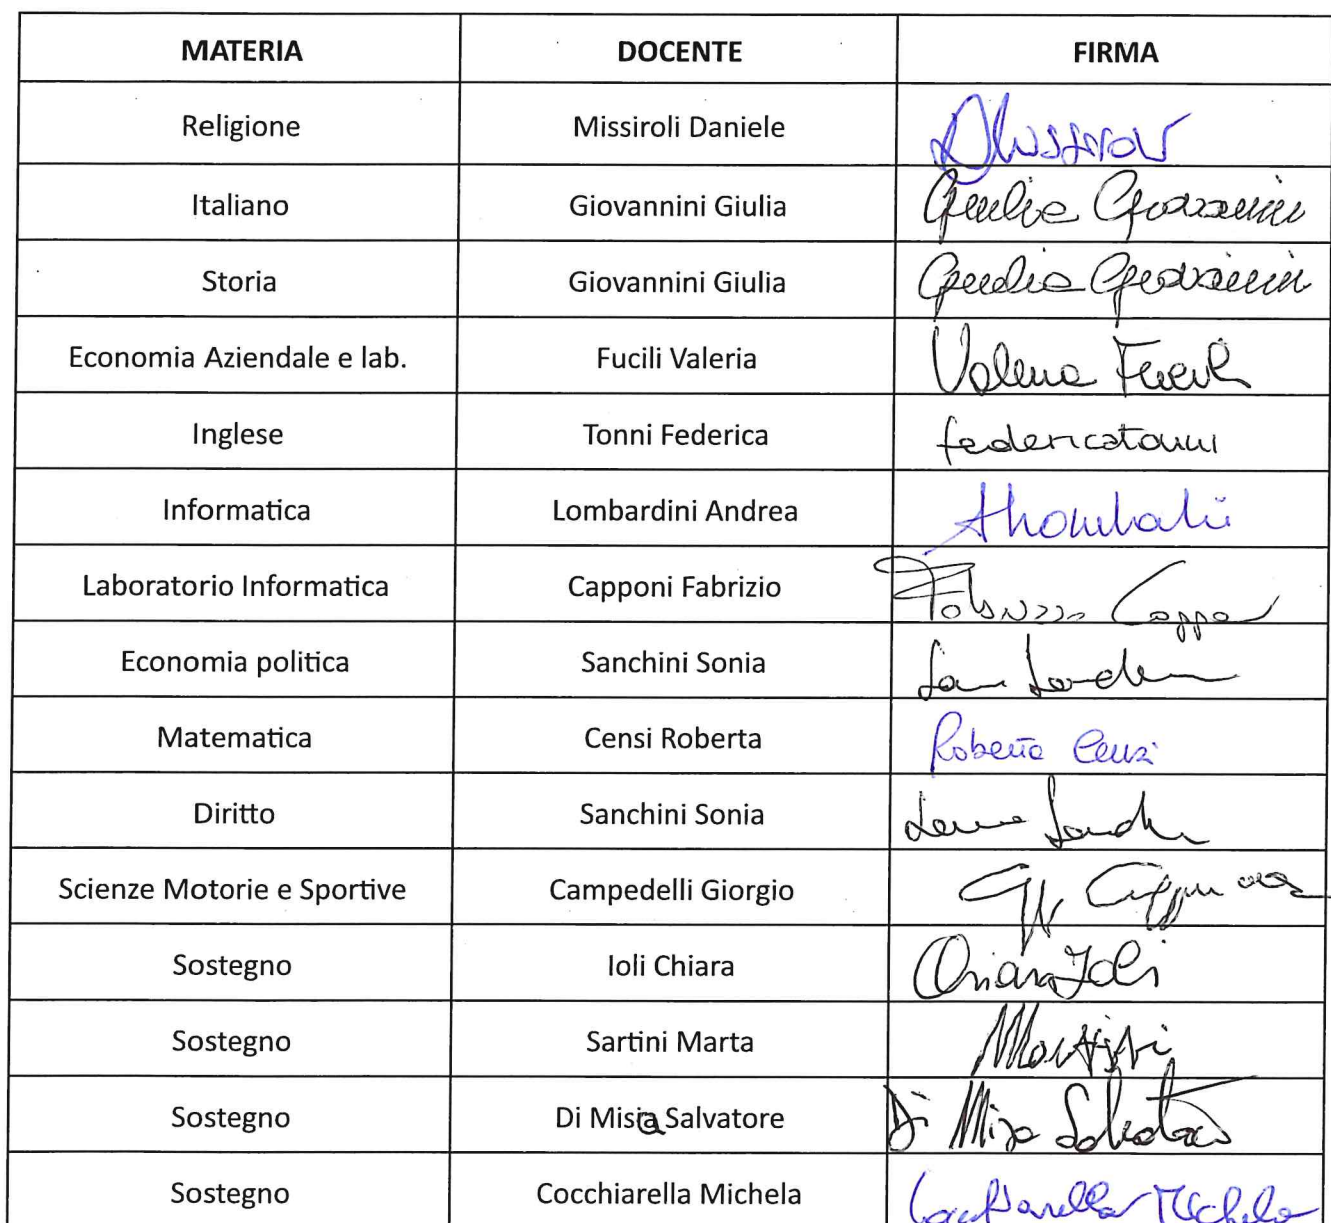 MATERIA DOCENTE FIRMA
Religione Missiroli Daniele
Italiano Giovannini Giulia Giulia Giovannini
Storia Giovannini Giulia Giulia Giovannini
Economia Aziendale e lab. Fucili Valeria Valeria Fucili
Inglese Tonni Federica federicatonni
Informatica Lombardini Andrea
Laboratorio Informatica Capponi Fabrizio Fabrizio
Economia politica Sanchini Sonia
Matematica Censi Roberta Roberta Censi
Diritto Sanchini Sonia
Scienze Motorie e Sportive Campedelli Giorgio
Sostegno Ioli Chiara Chiara Ioli
Sostegno Sartini Marta
Sostegno Di Misia Salvatore Di Misa Salvatore
Sostegno Cocchiarella Michela Cocchiarella Michela